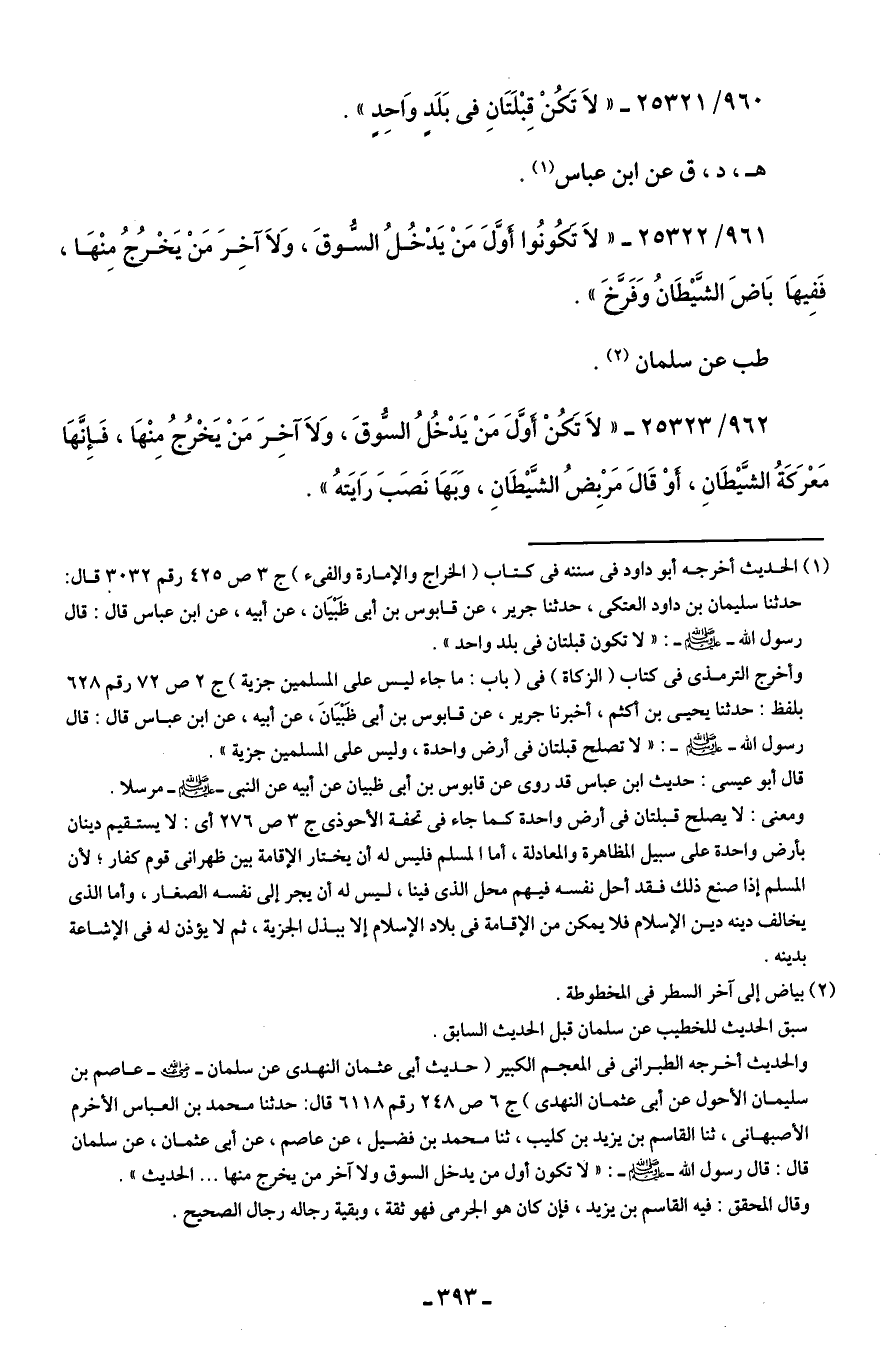 ٢٥٣٢١/٩٦٠ ـ « لاَ تَكُنْ قِبْلَتَانِ فى بَلَدٍ وَاحِدٍ » .
هـ ، د ، ق عن ابن عباس (١) .
٢٥٣٢٢/٩٦١ ـ « لاَ تَكُونُوا أَوَّلَ مَنْ يَدْخُلُ السُّوقَ ، وَلاَ آخِرَ مَنْ يَخْرُجُ مِنْهَا ،
فَفِيهَا بَاضَ الشَّيْطَانُ وَفَرَّخَ » .
طب عن سلمان (٢) .
٢٥٣٢٣/٩٦٢ ـ « لاَ تَكُنْ أَوَّلَ مَنْ يَدْخُلُ السُّوقَ ، وَلاَ آخِرَ مَنْ يَخْرُجُ مِنْهَا ، فَإِنَّهَا
مَعْرَكَةُ الشَّيْطَانِ ، أَوْ قَالَ مَرْبِضُ الشَّيْطَانِ ، وَبَهَا نَصَبَ رَايَتهُ » .
(١) الحديث أخرجه أبو داود فى سننه فى كتاب ( الخراج والإمارة والفىء ) ج ٣ ص ٤٢٥ رقم ٣٠٣٢ قال:
حدثنا سليمان بن داود العتكى ، حدثنا جرير ، عن قابوس بن أبى ظَبْيَان ، عن أبيه ، عن ابن عباس قال : قال
رسول الله ـ ﷺ ـ : « لا تكون قبلتان فى بلد واحد » .
وأخرج الترمذى فى كتاب ( الزكاة ) فى ( باب : ما جاء ليس على المسلمين جزية ) ج ٢ ص ٧٢ رقم ٦٢٨
بلفظ : حدثنا يحيى بن أكثم ، أخبرنا جرير ، عن قابوس بن أبى ظَبْيَانَ ، عن أبيه ، عن ابن عباس قال : قال
رسول الله ـ ﷺ ـ : « لا تصلح قبلتان فى أرض واحدة ، وليس على المسلمين جزية » .
قال أبو عيسى : حديث ابن عباس قد روى عن قابوس بن أبى ظبيان عن أبيه عن النبى ـ ﷺ ـ مرسلا .
ومعنى : لا يصلح قبلتان فى أرض واحدة كما جاء فى تحفة الأحوذى ج ٣ ص ٢٧٦ أى : لا يستقيم دينان
بأرض واحدة على سبيل المظاهرة والمعادلة ، أما المسلم فليس له أن يختار الإقامة بين ظهرانى قوم كفار ؛ لأن
المسلم إذا صنع ذلك فقد أحل نفسه فيهم محل الذى فينا ، ليس له أن يجر إلى نفسه الصغار ، وأما الذى
يخالف دينه دين الإسلام فلا يمكن من الإقامة فى بلاد الإسلام إلا ببذل الجزية ، ثم لا يؤذن له فى الإشاعة
بدينه .
(٢) بياض إلى آخر السطر فى المخطوطة .
سبق الحديث للخطيب عن سلمان قبل الحديث السابق .
والحديث أخرجه الطبرانى فى المعجم الكبير ( حديث أبى عثمان النهدى عن سلمان ـ رضي الله عنه ـ عاصم بن
سليمان الأحول عن أبى عثمان النهدى ) ج ٦ ص ٢٤٨ رقم ٦١١٨ قال: حدثنا محمد بن العباس الأخرم
الأصبهانى ، ثنا القاسم بن يزيد بن كليب ، ثنا محمد بن فضيل ، عن عاصم ، عن أبى عثمان ، عن سلمان
قال : قال رسول الله ـ ﷺ ـ : « لا تكون أول من يدخل السوق ولا آخر من يخرج منها ... الحديث » .
وقال المحقق : فيه القاسم بن يزيد ، فإن كان هو الجرمى فهو ثقة ، وبقية رجاله رجال الصحيح .
ـ ٣٩٣ ـ